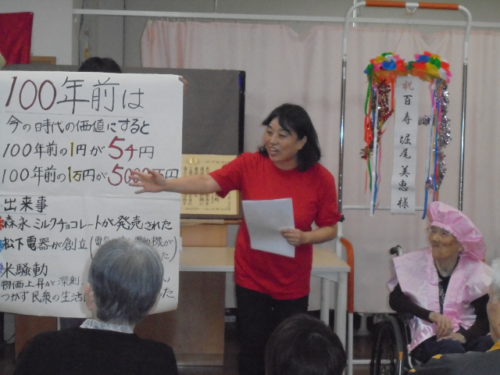 100年前は
今の時代の価値にすると
100年前の1円が54円
100年前の1万円が50
出来事
森永ミルクチョコレートが発売された
松下電器が創立
米騒動
物価上昇が深刻
つかず民衆の生活
祝 百寿 堀尾 美恵 様